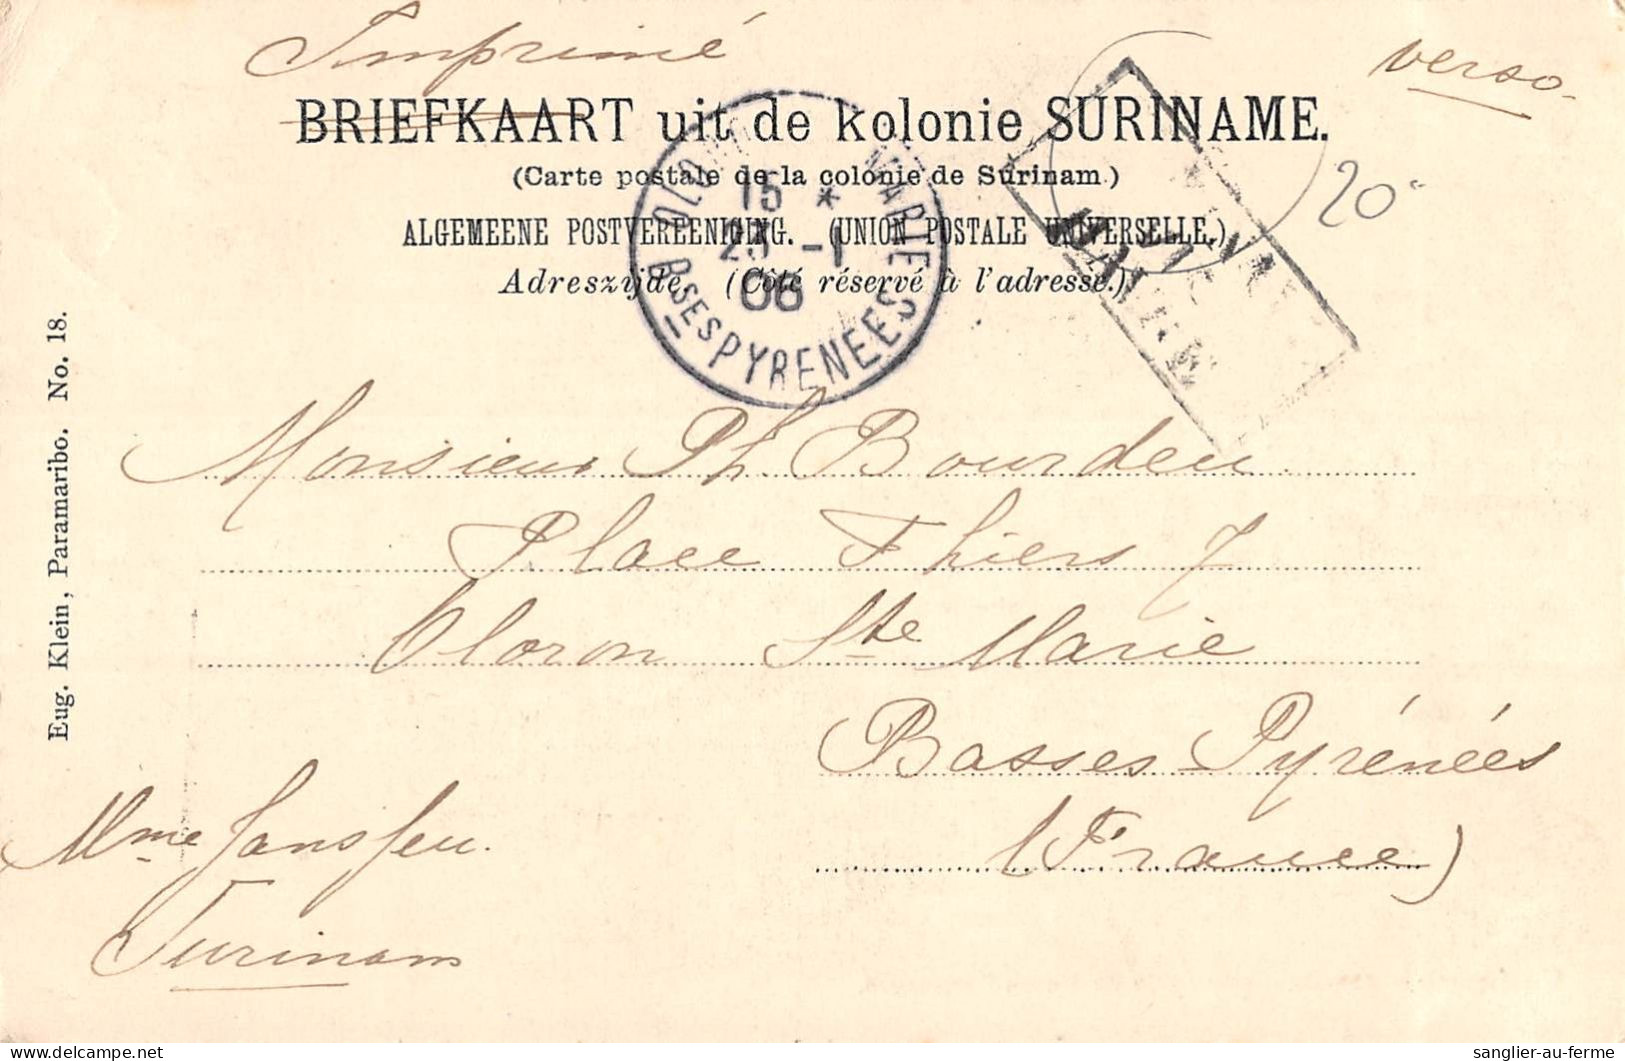 Imprimé
verso.
BRIEFKAART uit de kolonie SURINAME.
(Carte postale de la colonie de Surinam.)
ALGEMEENE POSTVEREENIGING. (UNION POSTALE UNIVERSELLE.)
Adreszijde. (Côté réservé à l'adresse.)
20
15 *
23 -1
06
MARIE
BSES PYRENEES
Eug. Klein, Paramaribo. No. 18.
Monsieur Ph. Bourdeu
Place Thiers 7
Oloron Ste Marie
Basses Pyrénées
(France)
Mme Janssen.
Surinam
sanglier-au-ferme